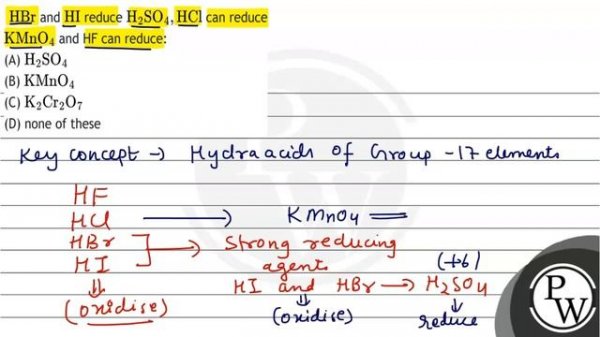 HBr and HI reduce H₂SO₄, HCl can reduce
KMnO₄ and HF can reduce:
(A) H₂SO₄
(B) KMnO₄
(C) K₂Cr₂O₇
(D) none of these
Key concept → Hydraacids of Group -17 elements
HF
HCl → KMnO₄
HBr
HI
→ Strong reducing
agents
(oxidise)
HI and HBr → H₂SO₄
(+6)
(oxidise)
reduce
P
W
PW